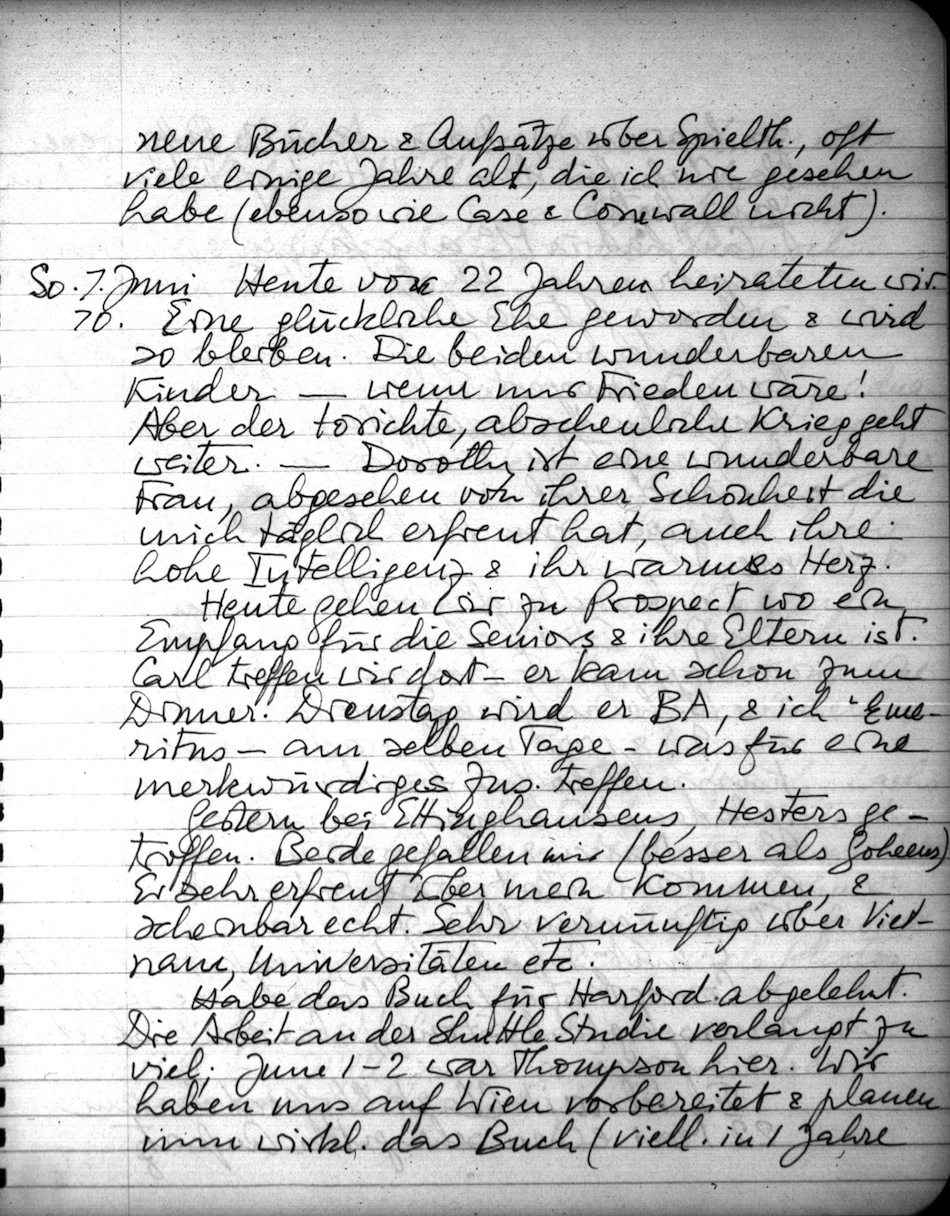 neue Bücher & Aufsätze über Spielth., oft
viele einige Jahre alt, die ich nie gesehen
habe (ebenso wie Case & Cornwall nicht).
So. 7. Juni Heute vor 22 Jahren heirateten wir.
70. Eine glückliche Ehe geworden & wird
so bleiben. Die beiden wunderbaren
Kinder — wenn nur Frieden wäre!
Aber der törichte, abscheuliche Krieg geht
weiter. — Dorothy ist eine wunderbare
Frau, abgesehen von ihrer Schönheit die
mich täglich erfreut hat, auch ihre
hohe Intelligenz & ihr warmes Herz.
Heute gehen wir zu Prospect wo ein
Empfang für die Seniors & ihre Eltern ist.
Carl treffen wir dort – er kam schon zum
Dinner. Dienstag wird er BA, & ich "Eme-
ritus – am selben Tage – was für eine
merkwürdiges Zus. treffen.
Gestern bei Ettinghausens, Hesters ge-
troffen. Beide gefallen mir (besser als Goheens)
Er sehr erfreut über mein Kommen, &
scheinbar echt. Sehr vernünftig über Viet-
nam, Universitäten etc.
Habe das Buch für Harford abgelehnt.
Die Arbeit an der Shuttle Studie verlangt zu
viel. June 1–2 war Thompson hier. Wir
haben uns auf Wien vorbereitet & planen
nun wirkl. das Buch (viell. in 1 Jahre